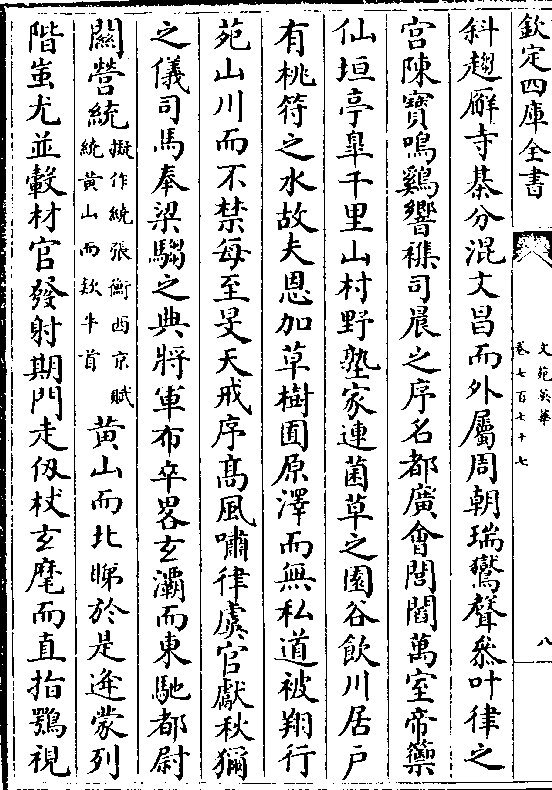 欽定四庫全書
文苑英華
卷七百七十七
八
斜趨廨寺棊分混文昌而外屬周朝瑞鷟聲叅叶律之
宫陳寳鳴鷄響襍司晨之序名都廣會閭閻萬室帝籞
仙垣亭臯千里山村野塾家連菌草之園谷飲川居戸
有桃符之水故夫恩加草樹囿原澤而無私道被翔行
苑山川而不禁每至旻天戒序髙風嘯律虞官獻秋獮
之儀司馬奉梁騶之典將軍布卒畧玄灞而東馳都尉
闗營統擬作繞張衡西京賦
繞黄山而欵牛首黄山而北睇於是逄蒙列
階蚩尤並轂材官發射期門走伇杖玄麾而直指鶚視